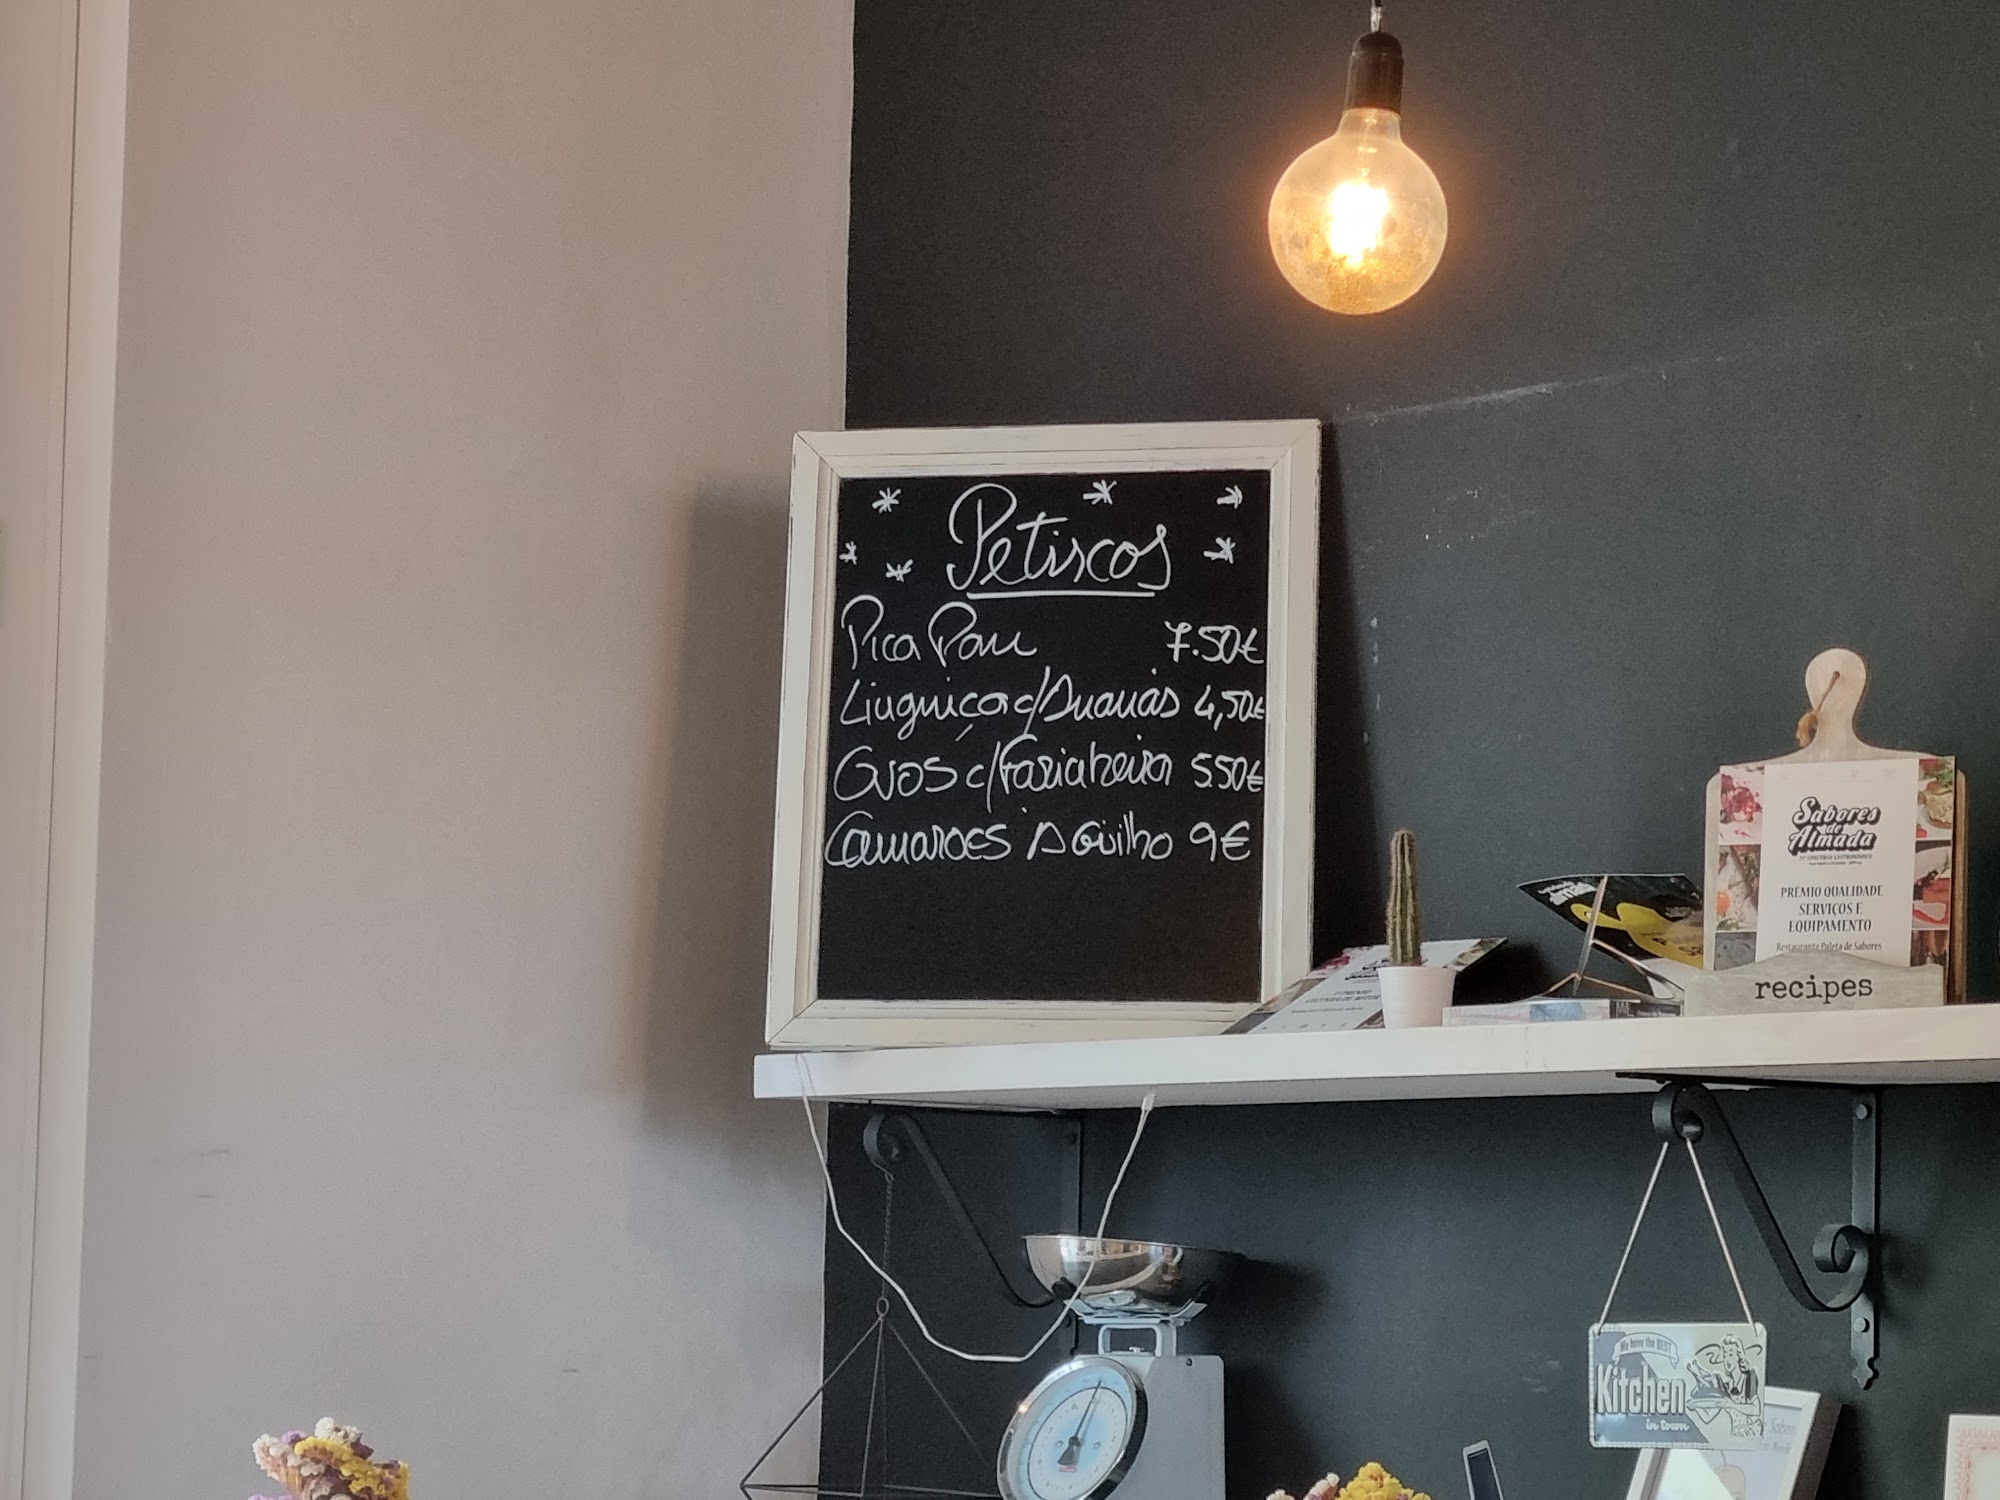 Petiscos
Pica Pau 7.50€
Linguiça c/Ananás 4,50€
Ovos c/Farinheira 5.50€
Camarões À Guilho 9€
Sabores
de
Almada
PRÉMIO QUALIDADE
SERVIÇOS E
EQUIPAMENTO
Restaurante Paleta de Sabores
recipes
We have the BEST
Kitchen
in town